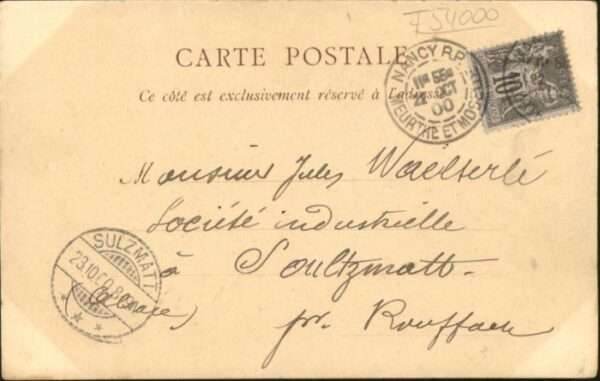 F54000
CARTE POSTALE
Ce côté est exclusivement réservé à l'adresse
NANCY R.P.
22 OCT
00
MEURTHE ET MOSELLE
10
Monsieur Jules Waelterlé
Société industrielle
à Soultzmatt
(Alsace) pr. Rouffach
SULZMATT
23.10.00